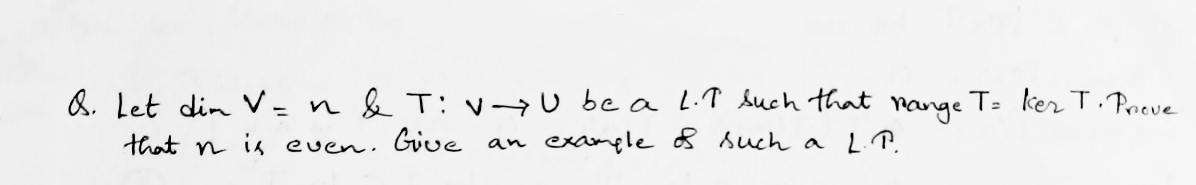 Q. Let dim V = n & T: V → U be a L.T such that range T = ker T. Prove
that n is even. Give an example of such a L.T.